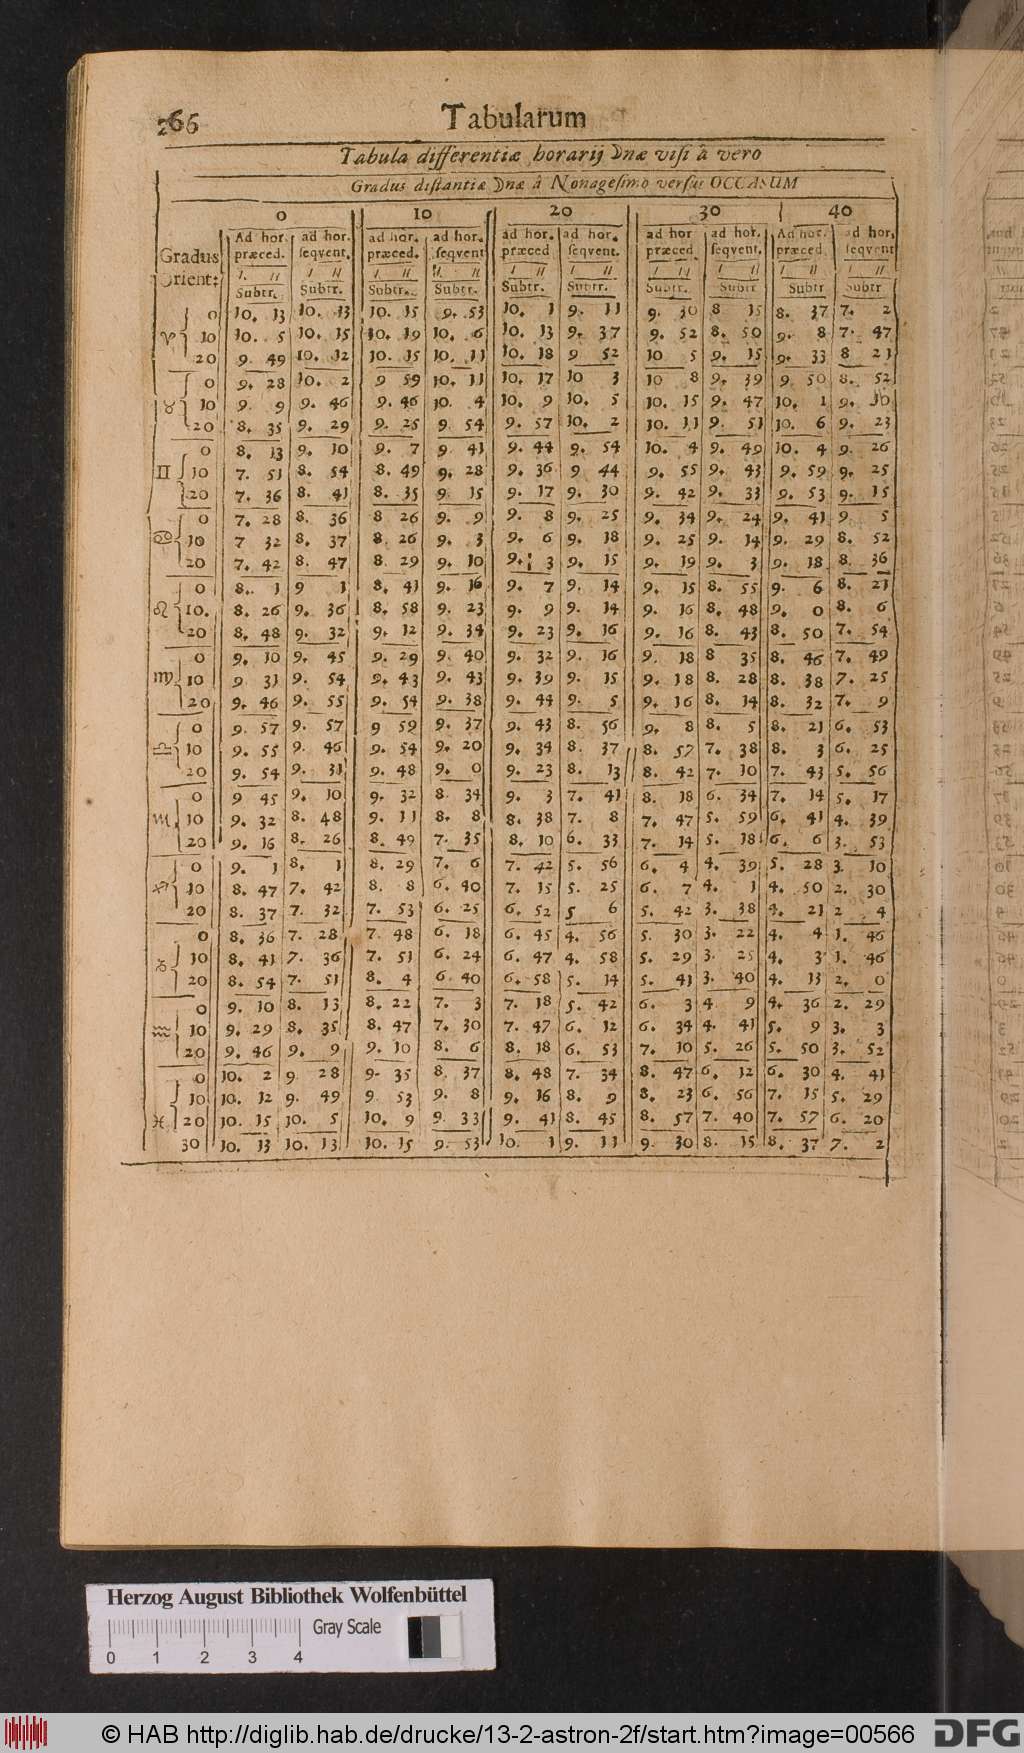 266 Tabularum
Tabula differentiæ horarij ☽næ visi à vero
Gradus distantiæ ☽næ à Nonagesimo versus OCCASUM
0 10 20 30 40
Gradus Orient: Ad hor. præced. ad hor. seqvent. ad hor. præced. ad hor. seqvent ad hor. præced ad hor. seqvent. ad hor præced ad hor. seqvent. Ad hor. præced. ad hor. seqvent
ı ıı ı ıı ı ıı ı ıı ı ıı ı ıı ı ıı ı ıı ı ıı ı ıı
Subtr. Subtr. Subtr. Subtr. Subtr. Subtr. Subtr. Subtr Subtr Subtr
♈ 0 10. 13 10. 13 10. 15 9. 53 10. 1 9. 11 9. 30 8 15 8. 37 7. 2
10 10. 5 10. 15 10. 19 10. 6 10. 13 9. 37 9. 52 8. 50 9. 8 7. 47
20 9. 49 10. 12 10. 15 10. 11 10. 18 9 52 10 5 9. 15 9. 33 8 21
♉ 0 9. 28 10. 2 9 59 10. 11 10. 17 10 3 10 8 9. 39 9. 50 8. 52
10 9. 9 9. 46 9. 46 10. 4 10. 9 10. 5 10. 15 9. 47 10. 1 9. 10
20 8. 35 9. 29 9. 25 9. 54 9. 57 10. 2 10. 11 9. 51 10. 6 9. 23
♊ 0 8. 13 9. 10 9. 7 9 41 9. 44 9. 54 10. 4 9. 49 10. 4 9. 26
10 7. 51 8. 54 8. 49 9. 28 9. 36 9 44 9. 55 9. 43 9. 59 9. 25
20 7. 36 8. 41 8. 35 9 15 9. 17 9. 30 9. 42 9. 33 9. 53 9. 15
♋ 0 7. 28 8. 36 8 26 9. 9 9. 8 9. 25 9. 34 9. 24 9. 41 9 5
10 7 32 8. 37 8. 26 9. 3 9. 6 9. 18 9. 25 9. 14 9. 29 8. 52
20 7. 42 8. 47 8. 29 9. 10 9. 3 9. 15 9. 19 9. 3 9. 18 8. 36
♌ 0 8. 1 9 1 8. 41 9. 16 9. 7 9. 14 9. 15 8. 55 9. 6 8. 21
10. 8. 26 9. 36 8. 58 9. 23 9. 9 9. 14 9. 16 8. 48 9. 0 8. 6
20 8. 48 9. 32 9. 12 9. 34 9. 23 9. 16 9. 16 8. 43 8. 50 7. 54
♍ 0 9. 10 9. 45 9. 29 9. 40 9. 32 9. 16 9. 18 8 35 8. 46 7. 49
10 9 31 9. 54 9. 43 9. 43 9. 39 9. 15 9. 18 8. 28 8. 38 7. 25
20 9. 46 9. 55 9. 54 9. 38 9. 44 9. 5 9. 16 8. 14 8. 32 7. 9
♎ 0 9. 57 9. 57 9 59 9. 37 9. 43 8. 56 9. 8 8. 5 8. 21 6. 53
10 9. 55 9. 46 9. 54 9. 20 9. 34 8. 37 8. 57 7. 38 8. 3 6. 25
20 9. 54 9. 31 9. 48 9. 0 9. 23 8. 13 8. 42 7. 10 7. 43 5. 56
♏ 0 9 45 9. 10 9. 32 8 34 9. 3 7. 41 8. 18 6. 34 7. 14 5. 17
10 9. 32 8. 48 9. 11 8. 8 8. 38 7. 8 7. 47 5. 59 6. 41 4. 39
20 9. 16 8. 26 8. 49 7. 35 8. 10 6. 33 7. 14 5. 18 6. 6 3. 53
♐ 0 9. 1 8. 1 8. 29 7. 6 7. 42 5. 56 6. 4 4. 39 5. 28 3. 10
10 8. 47 7. 42 8. 8 6. 40 7. 15 5. 25 6. 7 4. 1 4. 50 2. 30
20 8. 37 7. 32 7. 53 6. 25 6. 52 5 6 5. 42 3. 38 4. 21 2 4
♑ 0 8. 36 7. 28 7. 48 6. 18 6. 45 4. 56 5. 30 3. 22 4. 4 1. 46
10 8. 41 7. 36 7. 51 6. 24 6. 47 4. 58 5. 29 3. 25 4. 3 1. 46
20 8. 54 7. 51 8. 4 6 40 6. 58 5. 14 5. 41 3. 40 4. 13 2. 0
♒ 0 9. 10 8. 13 8. 22 7. 3 7. 18 5. 42 6. 3 4 9 4. 36 2. 29
10 9. 29 8. 35 8. 47 7. 30 7. 47 6. 12 6. 34 4. 41 5. 9 3. 3
20 9. 46 9. 9 9. 10 8. 6 8. 18 6. 53 7. 10 5. 26 5. 50 3. 52
♓ 0 10. 2 9 28 9. 35 8. 37 8. 48 7. 34 8. 47 6. 12 6. 30 4. 41
10 10. 12 9. 49 9 53 9. 8 9. 16 8. 9 8. 23 6. 56 7. 15 5. 29
20 10. 15 10. 5 10. 9 9 33 9. 41 8. 45 8. 57 7. 40 7. 57 6. 20
30 10. 13 10. 13 10. 15 9. 53 10. 1 9. 11 9. 30 8. 15 8. 37 7. 2
Herzog August Bibliothek Wolfenbüttel
Gray Scale
0 1 2 3 4
© HAB http://diglib.hab.de/drucke/13-2-astron-2f/start.htm?image=00566 DFG